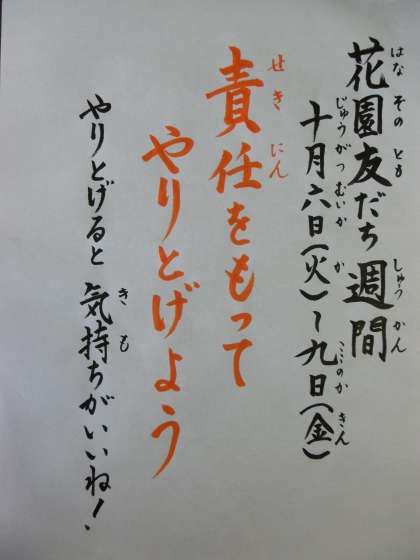 花園友だち週間
十月六日(火)～九日(金)
責任をもって
やりとげよう
やりとげると 気持ちがいいね！